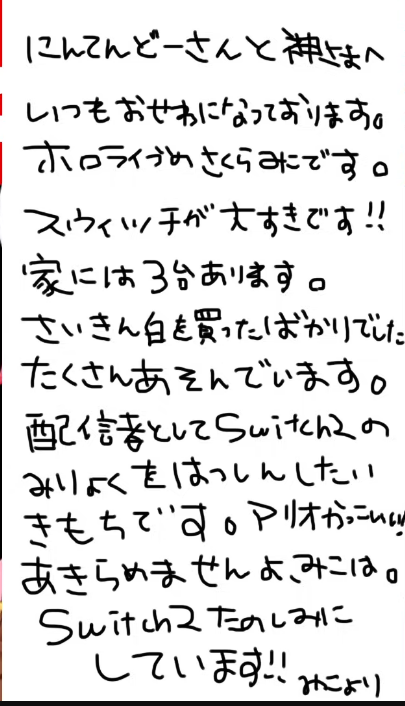 にんてんどーさんと神さまへ
いつもおせわになっております。
ホロライブめさくらみこです。
スウィッチが大すきです!!
家には3台あります。
さいきん白を買ったばかりでした
たくさんあそんでいます。
配信者としてSwitch2の
みりょくをはっしんしたい
きもちです。マリオかっこいい!
あきらめませんよ、みこは。
Switch2たのしみに
しています!!
みこより